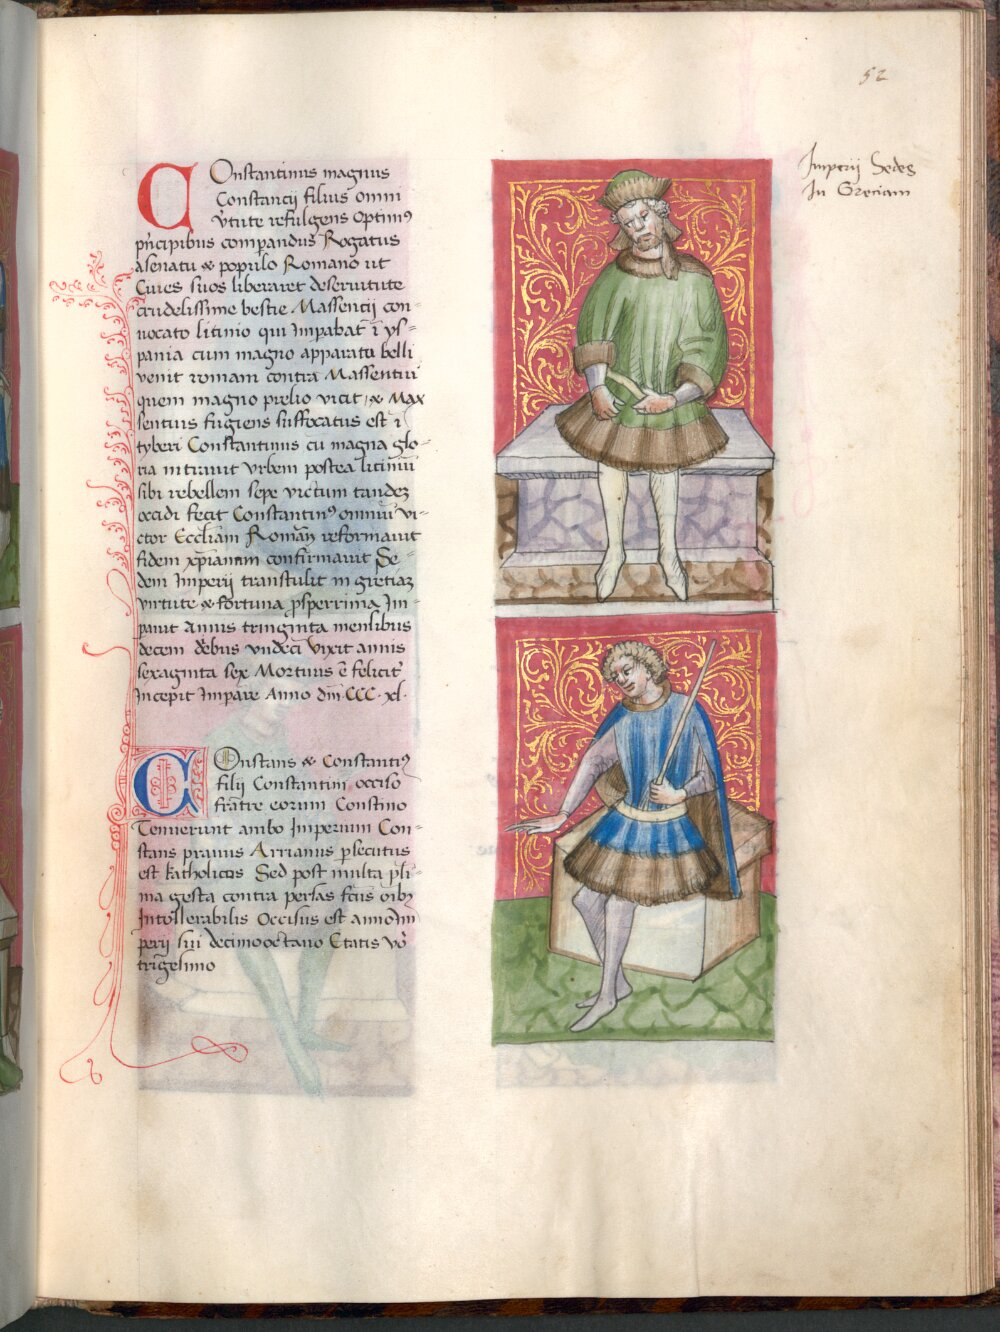 52
Imperij Sedes
In Greciam
Constantinus magnus
Constancij filius omni
v̓tute refulgens optimꝰ
pn̄cipibus comparandus Rogatus
asenatu & populo Romano ut
Ciues suos liberaret deseruitute
crudelissime bestie Massentij con-
uocato litinio qui Impabat ī ys-
pania cum magno apparatu belli
venit romam contra Massentiū
quem magno prelio vicit, & Max
sentius fugiens suffocatus est ī
tyberi Constantinus cū magna glo-
ria intrauit vrbem postea litiniū
sibi rebellem sepe victum tandeʒ
occidi fecit Constantinꝰ omniū vi-
ctor Eccl̄iam Romān reformauit
fidem xp̄ianam confirmauit Se-
dem Imperij transtulit in gretiaʒ
virtute & fortuna ꝓsperrima Im-
pauit Annis tringinta mensibus
decem dēbus vndeci vixit annis
sexaginta sex Mortuus ē felicit̓
Incepit Impāre Anno dn̄i CCC·xl·
Constans & Constantiꝰ
filij Constantini occiso
fratre eorum Constīno
Tenuerunt ambo Imperium Con-
stans prauus Arrianus ꝑsecutus
est katholicos Sed post multa p̄li-
ma gesta contra persas fc̄us oībꝫ
Intollerabilis Occisus est anno Im
perij sui decimooctauo Etatis v̓o
trigesimo